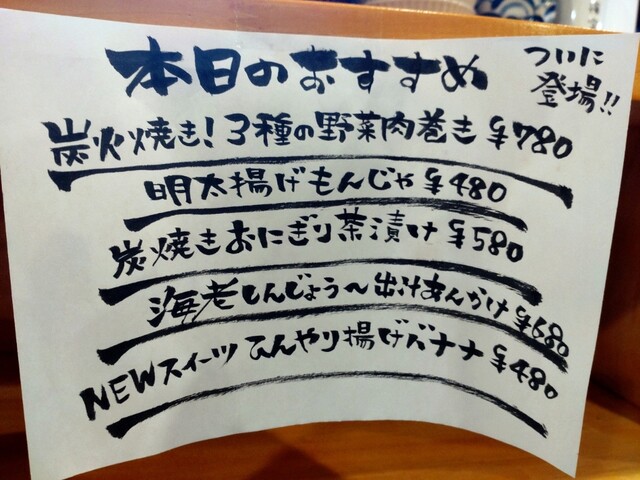 本日のおすすめ
ついに
登場!!
炭火焼き!3種の野菜肉巻き ¥780
明太揚げもんじゃ ¥480
炭焼きおにぎり茶漬け ¥580
海老しんじょう~出汁あんかけ ¥680
NEWスイーツ ひんやり揚げバナナ ¥480